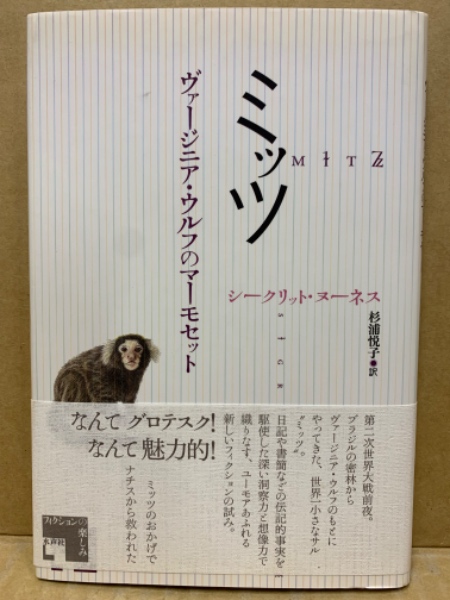 ミッツ
MITZ
ヴァージニア・ウルフのマーモセット
シークリット・ヌーネス
杉浦悦子●訳
SIGR
第二次世界大戦前夜。
ブラジルの密林から
ヴァージニア・ウルフのもとに
やってきた、世界一小さなサル
“ミッツ”。
日記や書簡などの伝記的事実を
駆使した深い洞察力と想像力で
織りなす、ユーモアあふれる
新しいフィクションの試み。
なんて グロテスク!
なんて 魅力的!
ミッツのおかげで
ナチスから救われた
フィクションの楽しみ
水声社